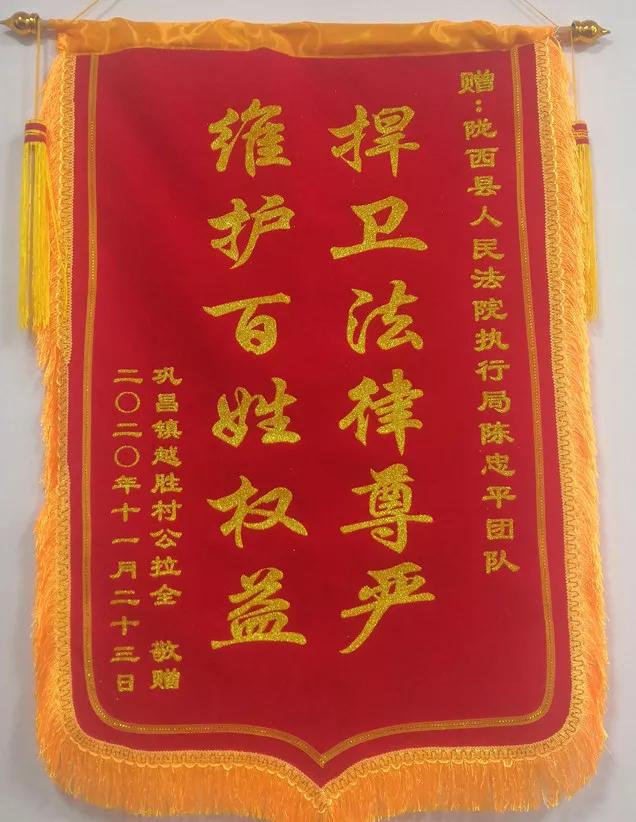 赠:陇西县人民法院执行局陈忠平团队
捍卫法律尊严
维护百姓权益
巩昌镇越胜村公拉全 敬赠
二〇二〇年十一月二十三日